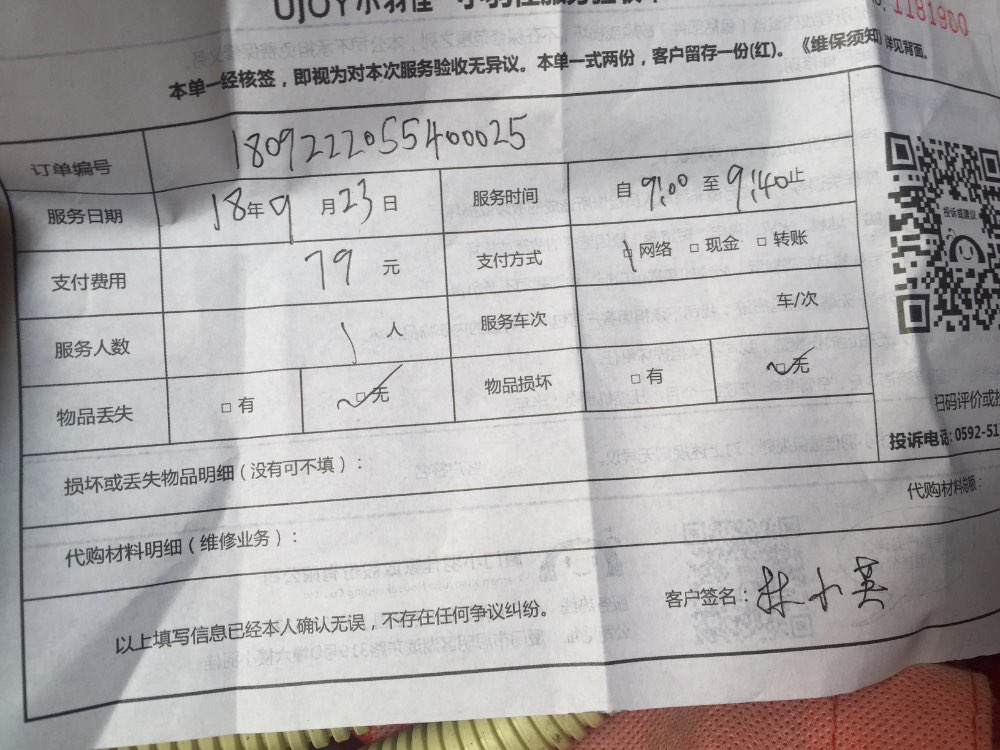 UJOY小羽佳
1181900
本单一经核签，即视为对本次服务验收无异议。本单一式两份，客户留存一份(红)。《维保须知》详见背面。
订单编号 180922205540025
服务日期 18年9月23日 服务时间 自9:00至9:40止
支付费用 79元 支付方式 □网络 □现金 □转账
服务人数 1人 服务车次 车/次
物品丢失 □有 □无 物品损坏 □有 □无
投诉或建议
扫码评价或
投诉电话: 0592-51
损坏或丢失物品明细（没有可不填）：
代购材料明细（维修业务）： 代购材料总额：
以上填写信息已经本人确认无误，不存在任何争议纠纷。 客户签名：林小英